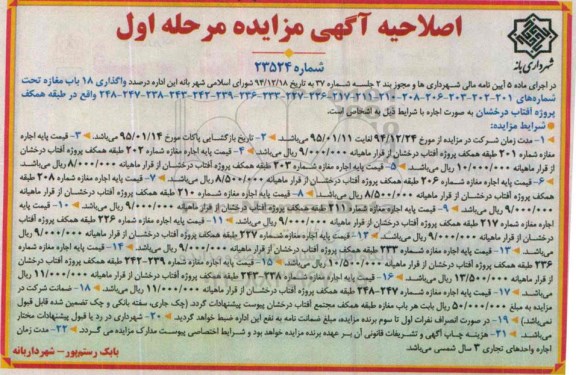 اصلاحیه آگهی مزایده مرحله اول
شهرداری بانه
شماره ۲۳۵۲۴
در اجرای ماده ۵ آیین نامه مالی شهرداری ها و مجوز بند ۲ جلسه شماره ۳۷ به تاریخ ۹۴/۱۲/۱۸ شورای اسلامی شهر بانه این اداره درصدد واگذاری ۱۸ باب مغازه تحت
شمارهای ۲۰۱-۲۰۲-۲۰۳-۲۰۶-۲۰۸-۲۱۰-۲۱۱-۲۱۷-۲۲۶-۲۲۷-۲۳۳-۲۳۶-۲۳۹-۲۴۲-۲۴۳-۲۳۸-۲۴۷-۲۴۸ واقع در طبقه همکف
پروژه آفتاب درخشان به صورت اجاره با شرایط ذیل به اشخاص است.
شرایط مزایده:
۱- مدت زمان شرکت در مزایده از مورخ ۹۴/۱۲/۲۴ لغایت ۹۵/۰۱/۱۱ می‌باشد. ۲- تاریخ بازگشائی پاکات مورخ ۹۵/۰۱/۱۴ می‌باشد. ۳- قیمت پایه اجاره
مغازه شماره ۲۰۱ طبقه همکف پروژه آفتاب درخشان از قرار ماهیانه ۹/۰۰۰/۰۰۰ ریال می‌باشد. ۴- قیمت پایه اجاره مغازه شماره ۲۰۲ طبقه همکف پروژه آفتاب
درخشان از قرار ماهیانه ۱۰/۰۰۰/۰۰۰ ریال می‌باشد. ۵- قیمت پایه اجاره مغازه شماره ۲۰۳ طبقه همکف پروژه آفتاب درخشان از قرار ماهیانه ۸/۰۰۰/۰۰۰ ریال می‌باشد.
۶- قیمت پایه اجاره مغازه شماره ۲۰۶ طبقه همکف پروژه آفتاب درخشان از قرار ماهیانه ۸/۵۰۰/۰۰۰ ریال می‌باشد. ۷- قیمت پایه اجاره مغازه شماره ۲۰۸ طبقه
همکف پروژه آفتاب درخشان از قرار ماهیانه ۸/۵۰۰/۰۰۰ ریال می‌باشد. ۸- قیمت پایه اجاره مغازه شماره ۲۱۰ طبقه همکف پروژه آفتاب درخشان از قرار ماهیانه
۹/۰۰۰/۰۰۰ ریال می‌باشد. ۹- قیمت پایه اجاره مغازه شماره ۲۱۱ طبقه همکف پروژه آفتاب درخشان از قرار ماهیانه ۹/۰۰۰/۰۰۰ ریال می‌باشد. ۱۰- قیمت پایه
اجاره مغازه شماره ۲۱۷ طبقه همکف پروژه آفتاب درخشان از قرار ماهیانه ۹/۰۰۰/۰۰۰ ریال می‌باشد. ۱۱- قیمت پایه اجاره مغازه شماره ۲۲۶ طبقه همکف پروژه آفتاب
درخشان از قرار ماهیانه ۹/۰۰۰/۰۰۰ ریال می‌باشد. ۱۲- قیمت پایه اجاره مغازه شماره ۲۲۷ طبقه همکف پروژه آفتاب درخشان از قرار ماهیانه ۹/۰۰۰/۰۰۰ ریال
می‌باشد. ۱۳- قیمت پایه اجاره مغازه شماره ۲۳۳ طبقه همکف پروژه آفتاب درخشان از قرار ماهیانه ۹/۰۰۰/۰۰۰ ریال می‌باشد. ۱۴- قیمت پایه اجاره مغازه شماره
۲۳۶ طبقه همکف پروژه آفتاب درخشان از قرار ماهیانه ۱۰/۵۰۰/۰۰۰ ریال می‌باشد. ۱۵- قیمت پایه اجاره مغازه شماره ۲۳۹-۲۴۲ طبقه همکف پروژه آفتاب درخشان از
قرار ماهیانه ۱۳/۵۰۰/۰۰۰ ریال می‌باشد. ۱۶- قیمت پایه اجاره مغازه شماره ۲۳۸-۲۴۳ طبقه همکف پروژه آفتاب درخشان از قرار ماهیانه ۱۱/۰۰۰/۰۰۰ ریال
می‌باشد. ۱۷- قیمت پایه اجاره مغازه شماره ۲۴۷-۲۴۸ طبقه همکف پروژه آفتاب درخشان از قرار ماهیانه ۱۱/۰۰۰/۰۰۰ ریال می‌باشد. ۱۸- ضمانت شرکت در
مزایده به مبلغ ۵۰/۰۰۰/۰۰۰ ریال بابت هر باب مغازه طبقه همکف مجتمع آفتاب درخشان پیوست پیشنهادات گردد. (چک جاری، سفته بانکی و چک تضمین شده قابل قبول
نمی‌باشد.) ۱۹- در صورت انصراف نفرات اول تا سوم برنده مزایده، مبلغ ضمانت نامه به نفع این اداره ضبط خواهد گردید ۲۰- شهرداری در رد یا قبول پیشنهادات مختار
می‌باشد. ۲۱- هزینه چاپ آگهی و تشریفات قانونی آن بر عهده برنده مزایده خواهد بود و شرایط اختصاصی پیوست مدارک مزایده می گردد. ۲۲- مدت زمان
اجاره واحدهای تجاری ۳ سال شمسی می‌باشد.
بابک رستم‌پور - شهردار بانه